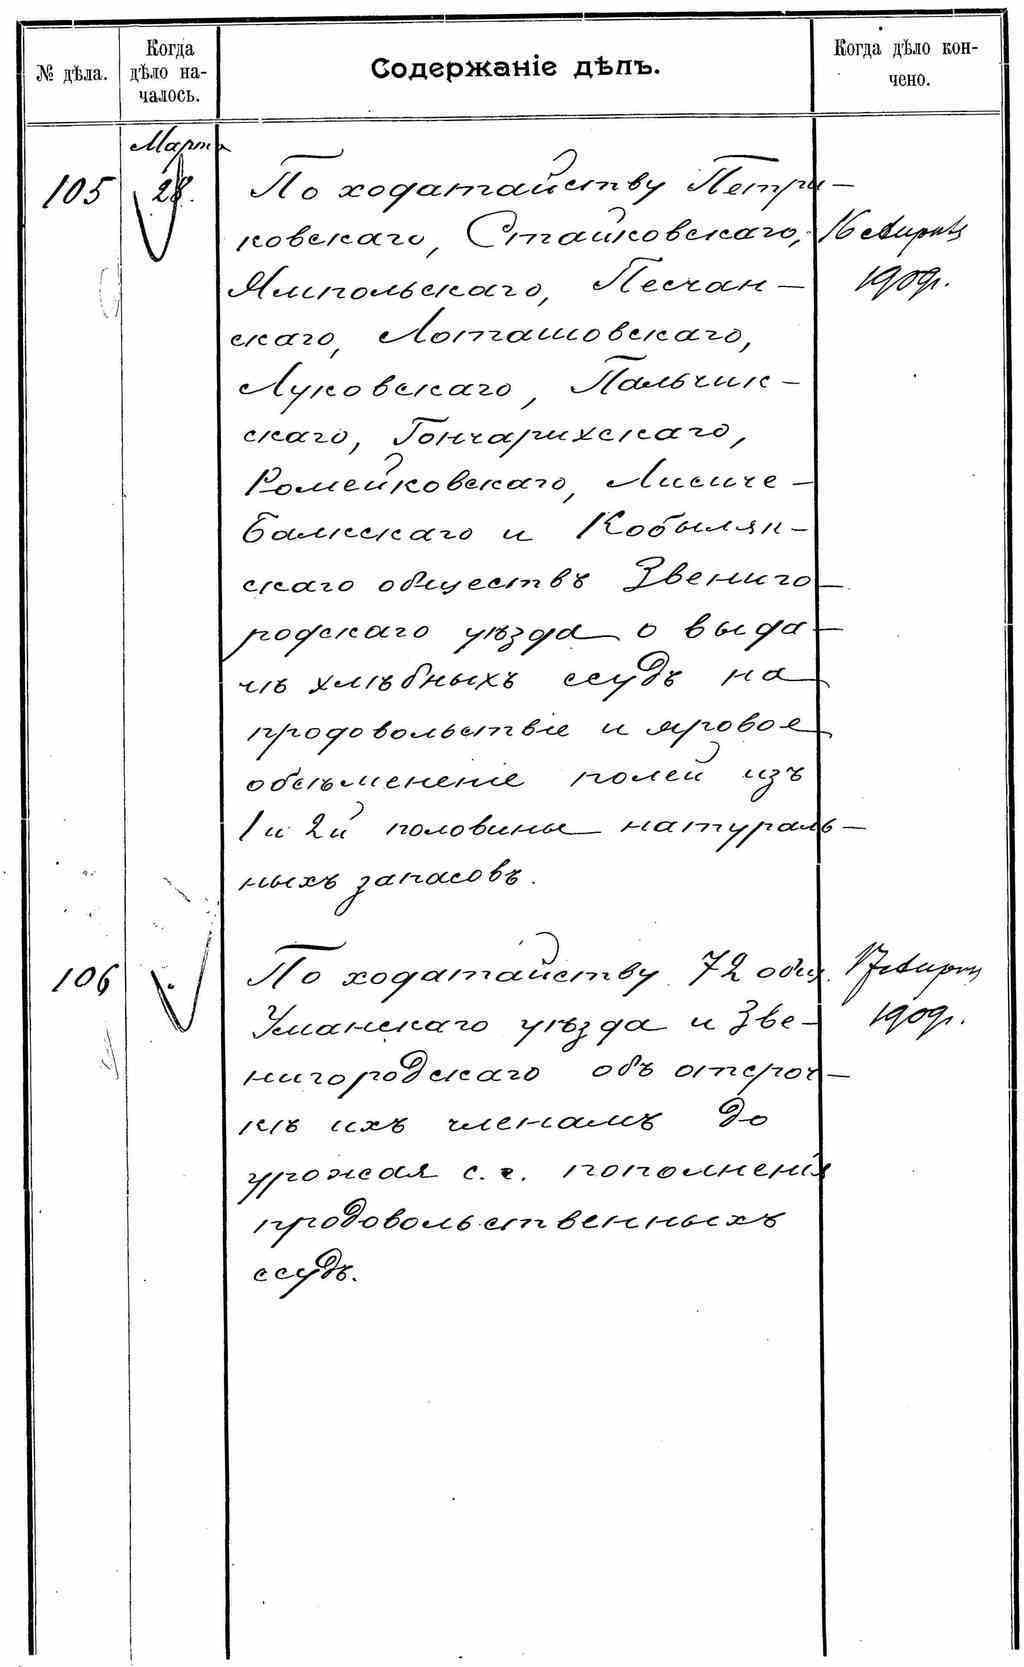 № дѣла.
Когда
дѣло на-
чалось.
Содержаніе дѣлъ.
Когда дѣло кон-
чено.
Марта
105
28.
По ходатайству Петри-
ковскаго, Стайковскаго,
Ямпольскаго, Песчан-
скаго, Лоташовскаго,
Луковскаго, Пальчик-
скаго, Гончарихскаго,
Ромейковскаго, Лисиче-
балкскаго и Кобыляк-
скаго обществъ Звениго-
родскаго уѣзда о выда-
чѣ хлѣбныхъ ссудъ на
продовольствіе и яровое
обсѣмененіе полей изъ
1 и 2й половины натураль-
ныхъ запасовъ.
16 Апрѣля
1909г.
106
По ходатайству 72 общ.
Уманскаго уѣзда и Зве-
нигородскаго объ отсроч-
кѣ ихъ членамъ до
урожая с. г. пополненія
продовольственныхъ
ссудъ.
17 Апрѣля
1909г.